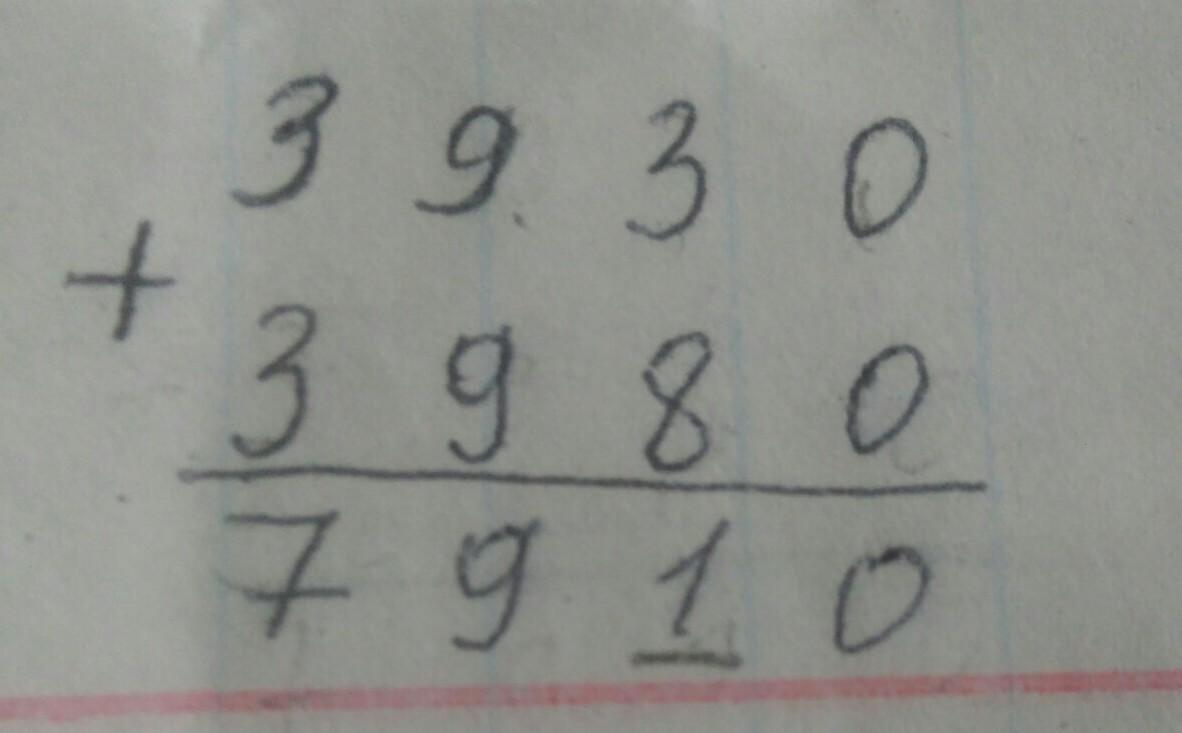 3930
+
3980
7910